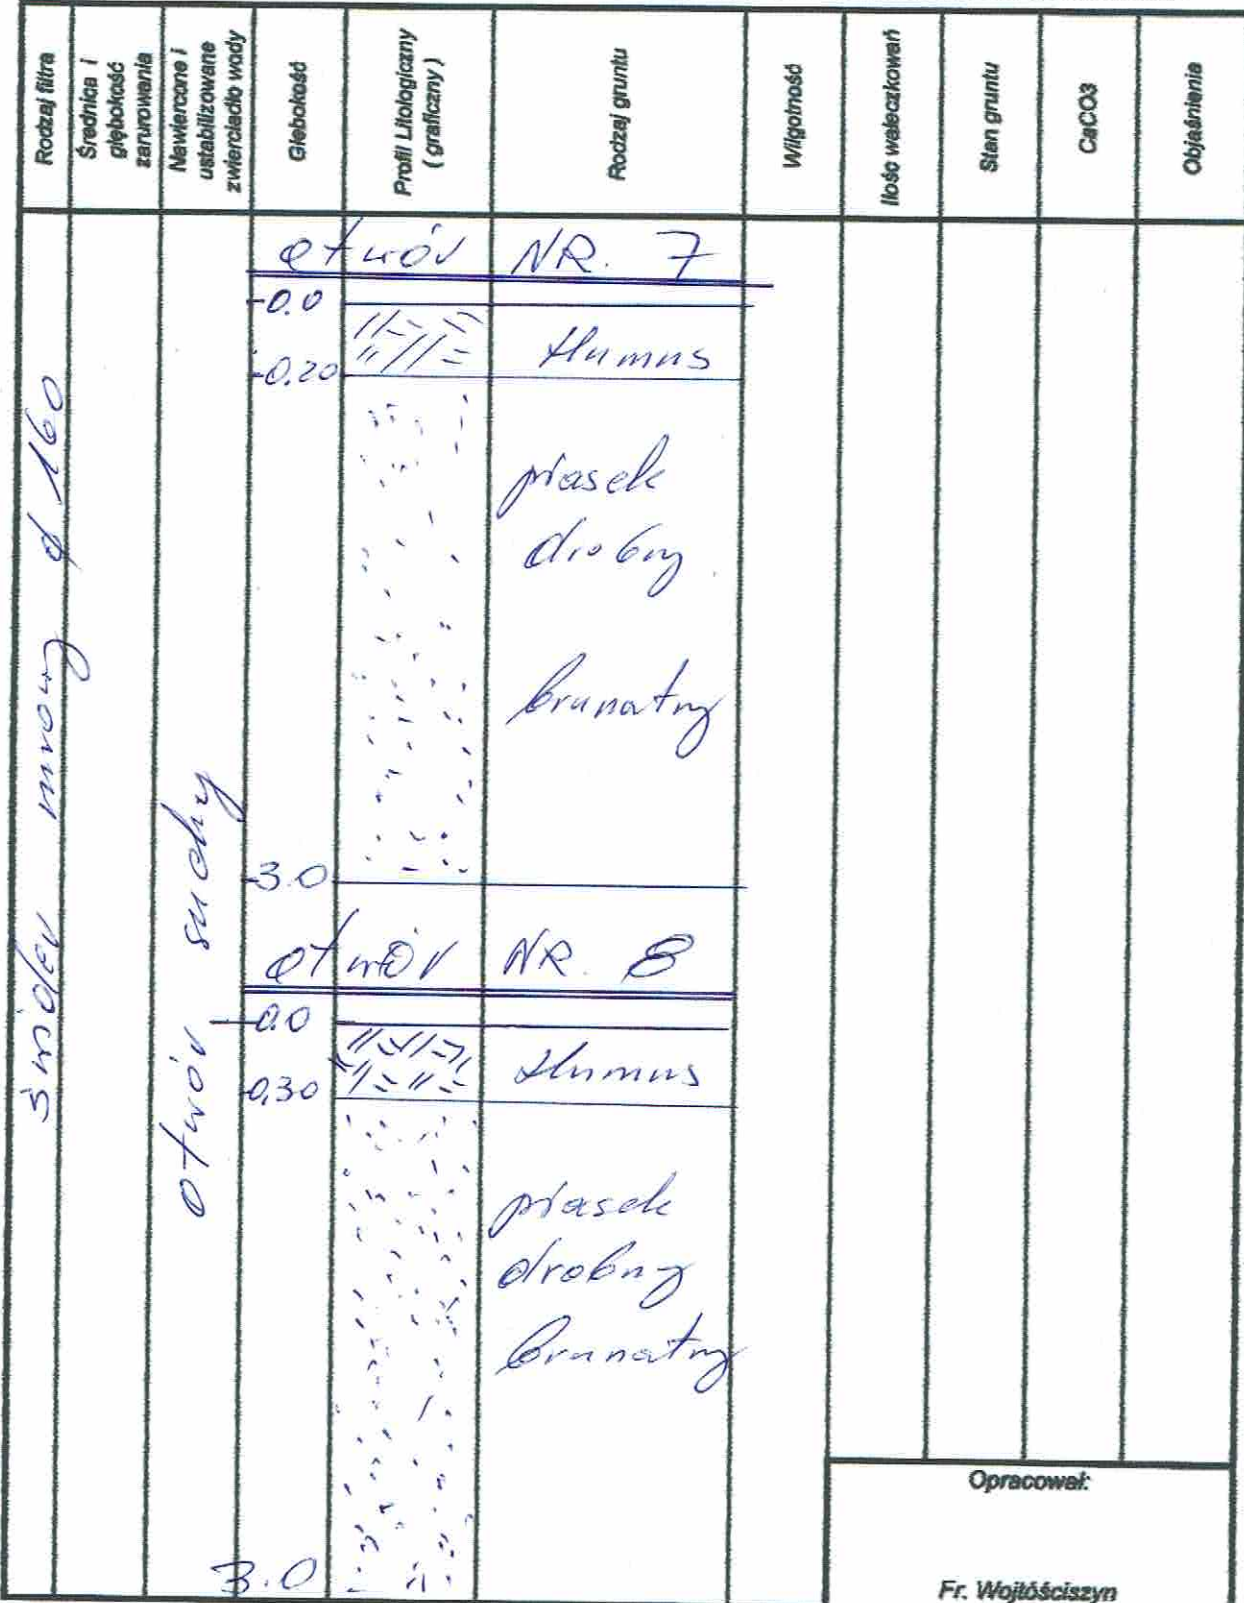 Rodzaj filtra
Średnica i
głębokość
zarurowania
Nawiercone i
ustabilizowane
zwierciadło wody
Głębokość
Profil Litologiczny
( graficzny )
Rodzaj gruntu
Wilgotność
Ilość wałeczkowań
Stan gruntu
CaCO3
Objaśnienia
otwór NR. 7
0.0
Humus
0.20
piasek
drobny
brunatny
3.0
otwór NR. 8
0.0
Humus
0,30
piasek
drobny
brunatny
3.0
otwór suchy
ø 160
Opracował:
Fr. Wojtóściszyn